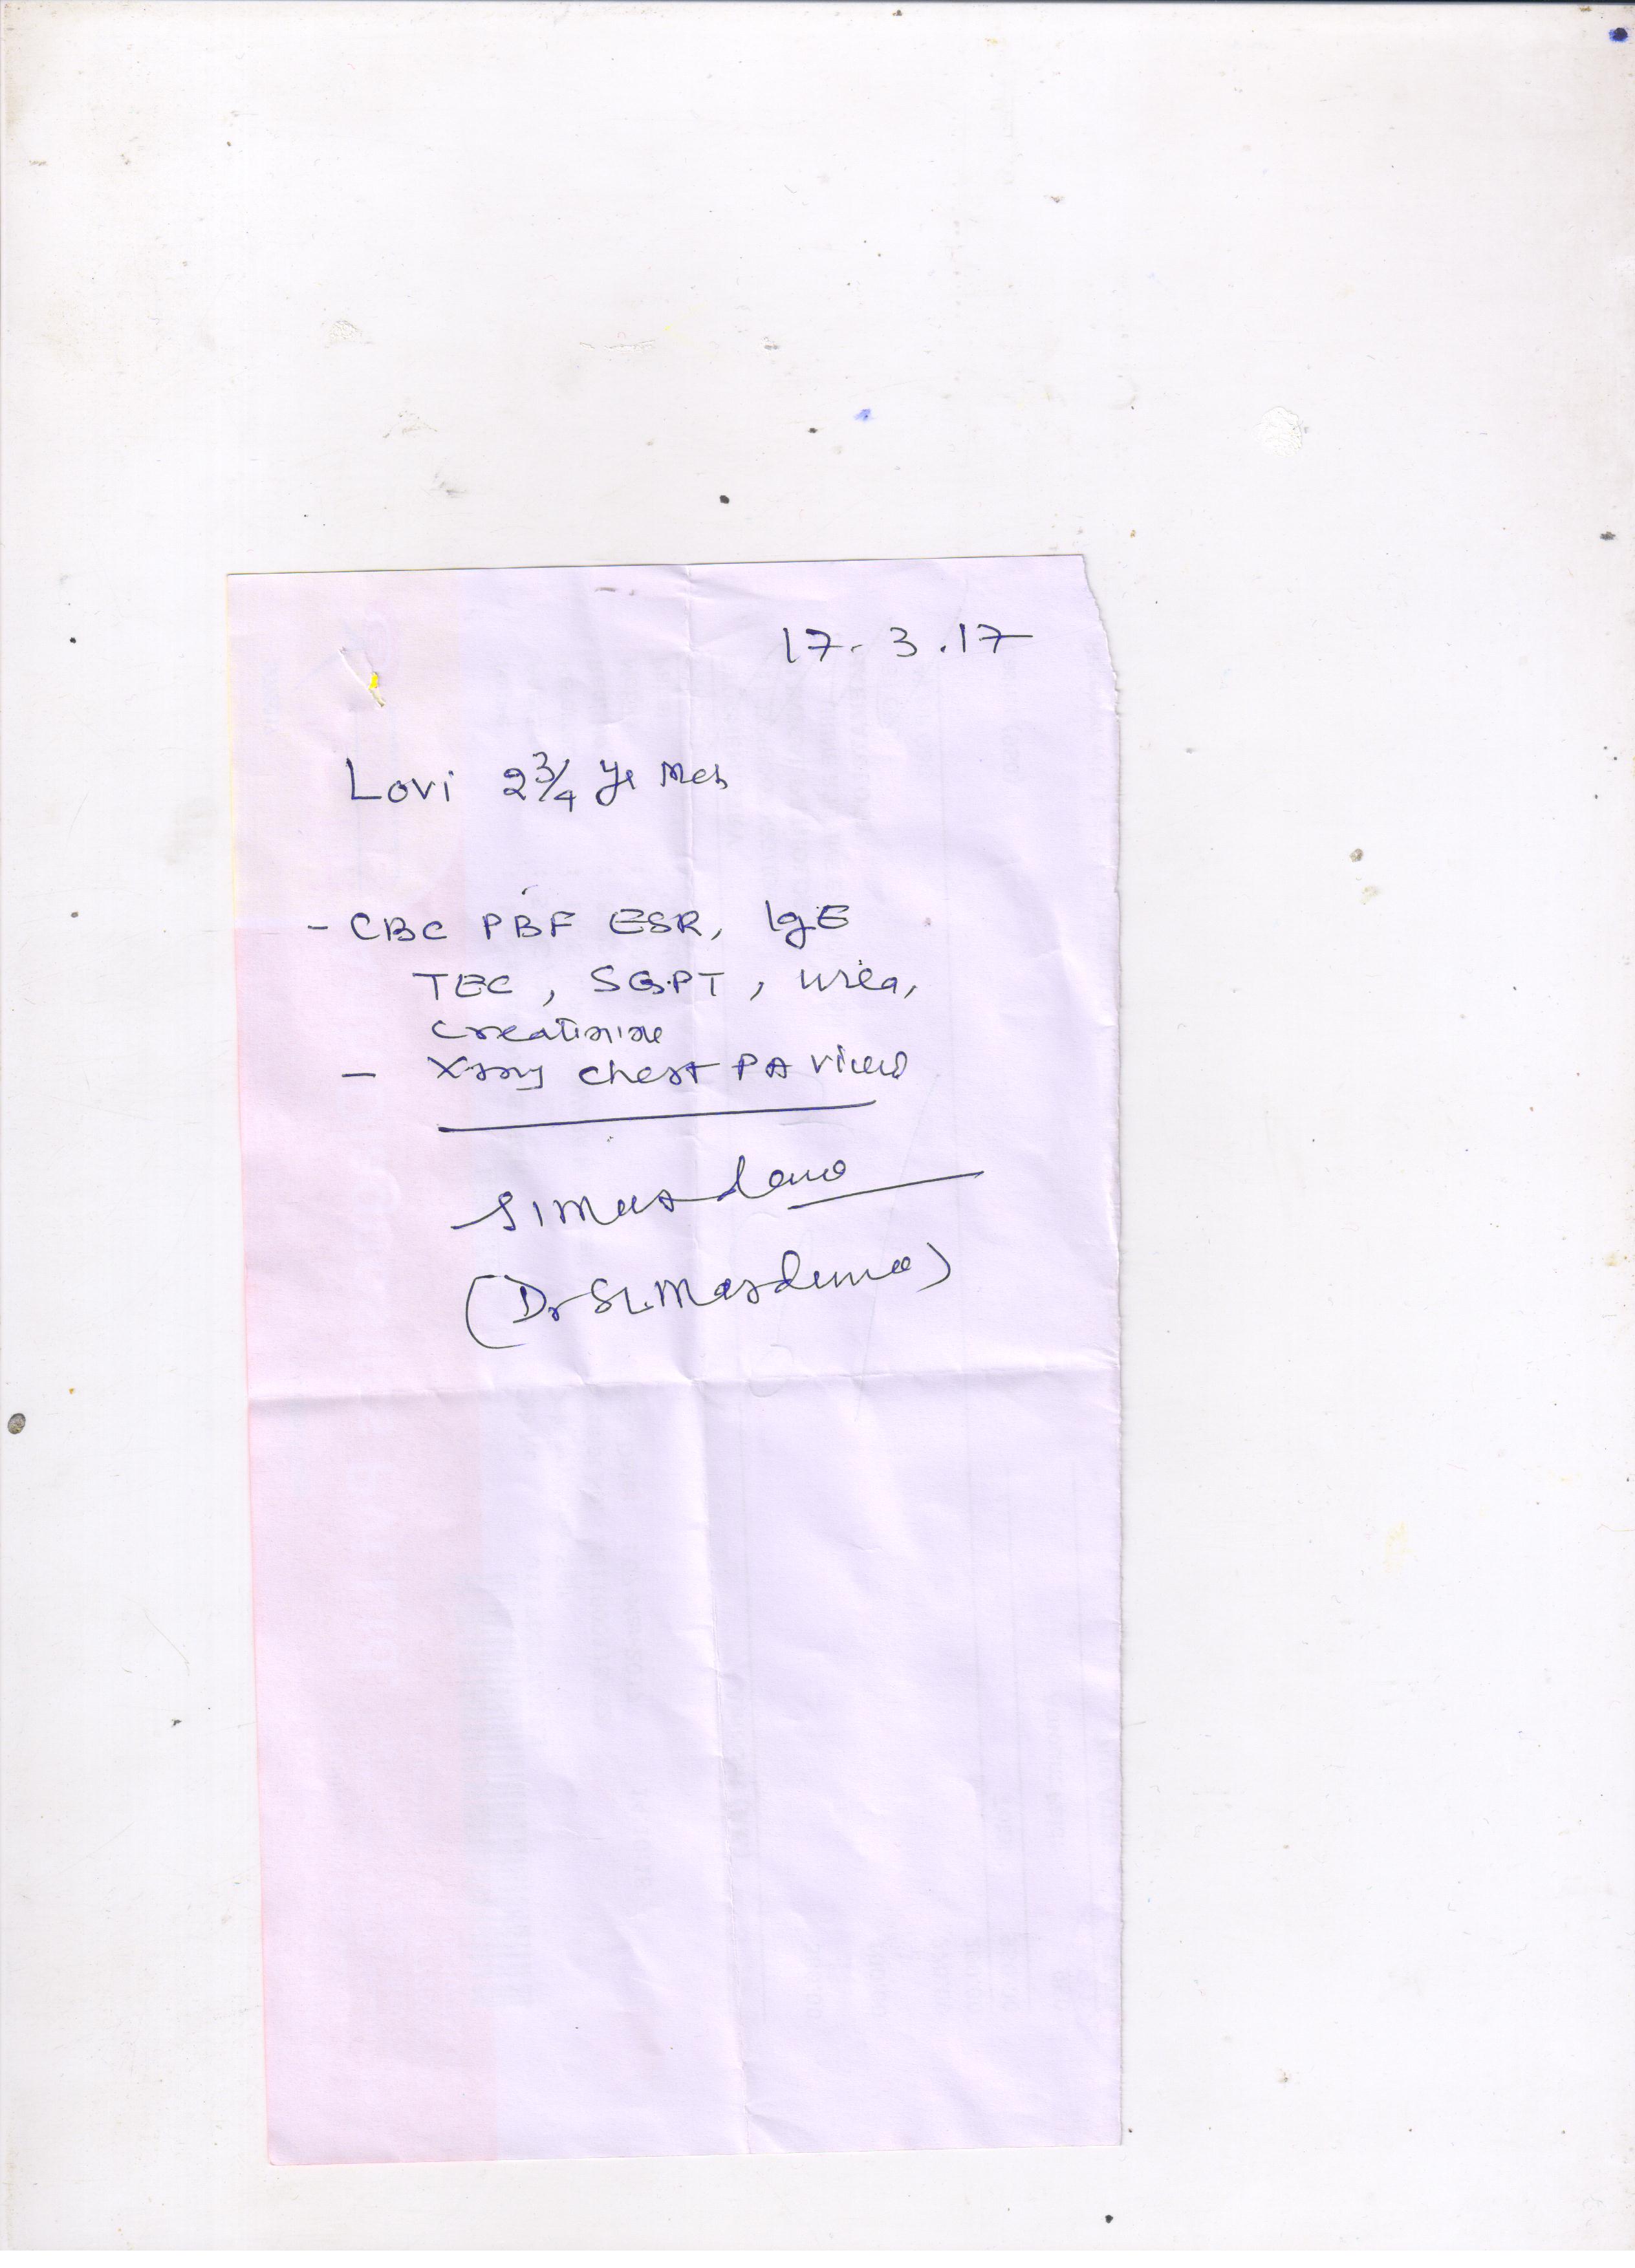 17.3.17
Lovi 2 3/4 yr
- CBC PBF ESR, IgE
TEC, SGPT, urea,
creatinine
- Xray chest PA view
(Dr